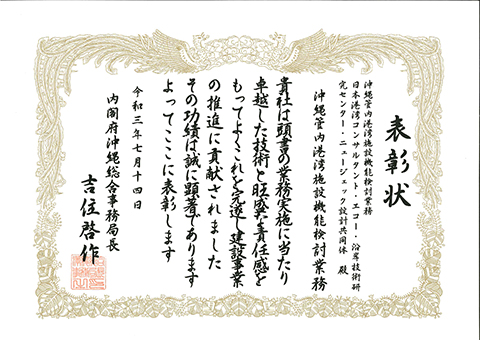 表彰状
沖縄管内港湾施設機能検討業務
日本港湾コンサルタント・エコー・沿岸技術研
究センター・ニュージェック設計共同体 殿
沖縄管内港湾施設機能検討業務
貴社は頭書の業務実施に当たり
卓越した技術と旺盛な責任感を
もってよくこれを完遂し建設事業
の推進に貢献されました
その功績は誠に顕著であります
よってここに表彰します
令和三年七月十四日
内閣府沖縄総合事務局長
吉住啓作